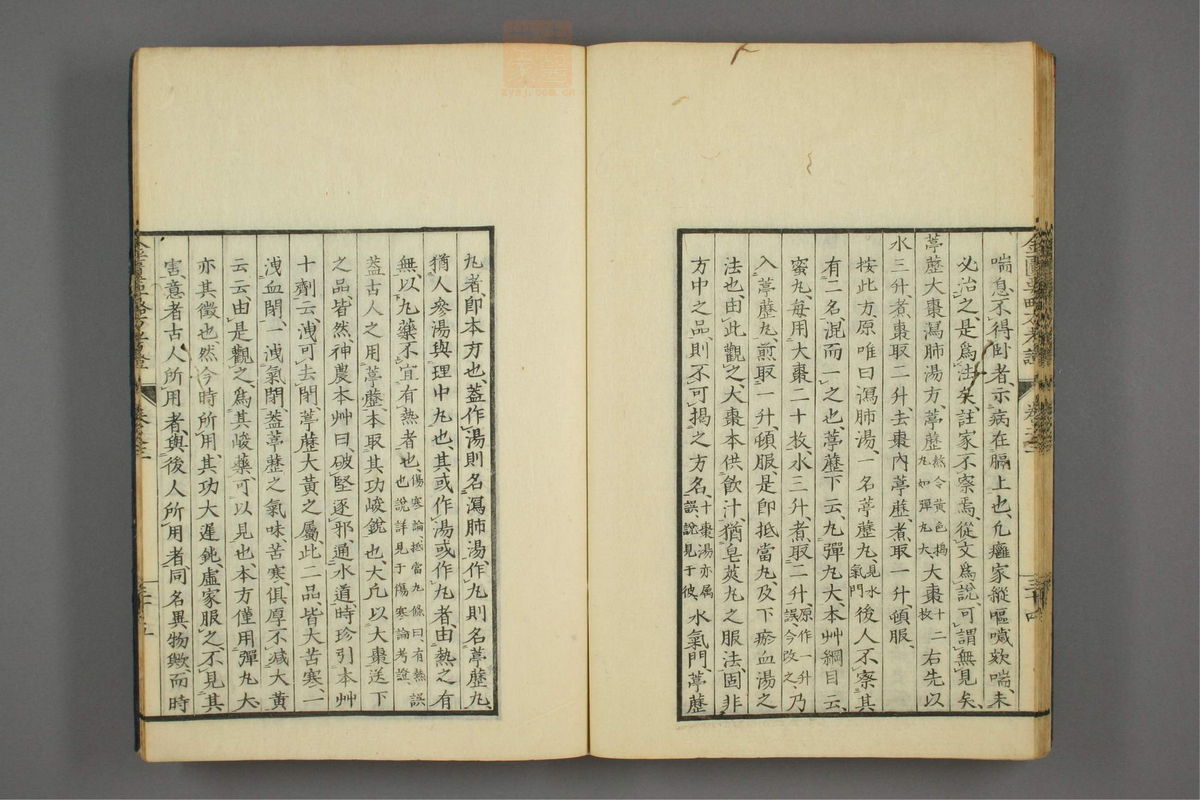 喘息、不得卧者、示病在膈上也、凡癰家縱嘔噦欬喘、未
必治之是爲法矣、註家不察焉、從文爲說、可謂無見矣、
葶藶大棗瀉肺湯方、葶藶熬令黃色搗丸如彈丸大大棗十二枚右先以
水三升煮棗取二升、去棗內葶藶煮取一升頓服、
按此方原唯曰瀉肺湯、一名葶藶丸、見水氣門後人不察其
有二名、混而一之也、葶藶下云、丸彈丸大、本艸綱目云、
蜜丸、每用大棗二十枚、水三升煮取二升、原作一升誤今改之、乃
入葶藶丸、煎取一升、頓服、是卽抵當丸、及下瘀血湯之
法也、由此觀之、大棗本供飮汁、猶皂莢丸之服法、固非
方中之品、則不可揭之方名、十棗湯亦属誤、說見于彼、水氣門、葶藶
丸者卽本方也、蓋作湯則名瀉肺湯、作丸則名葶藶丸、
猶人參湯與理中丸也、其或作湯或作丸者、由熱之有
無、以丸藥不宜有熱者也、傷寒論、抵當丸條曰、有熱誤也說詳見于傷寒論考證、
蓋古人之用葶藶、本取其功峻銳也、大凡以大棗送下
之品、皆然、神農本艸曰、破堅逐邪、通水道、時珍引本艸
十劑云、洩可去閉葶藶大黃之屬、此二品皆大苦寒、一
洩血閉、一洩氣閉、蓋葶藶之氣味、苦寒、俱厚、不減大黃
云云、由是觀之、爲其峻藥、可以見也、本方僅用彈丸大、
亦其徵也、然今時所用、其功大遲鈍、虛家服之、不見其
害、意者古人所用者、與後人所用者、同名異物歟、而時